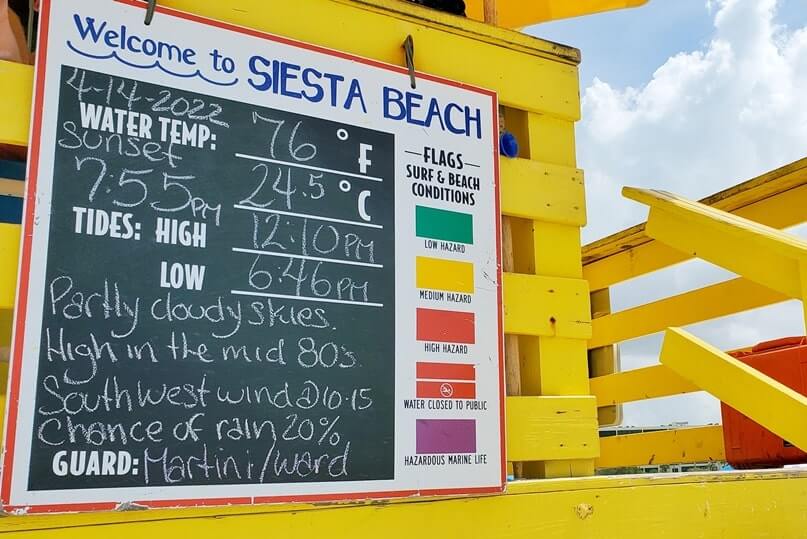 Welcome to SIESTA BEACH
4-14-2022
WATER TEMP: 76 °F
sunset
7:55pm 24.5 °C
TIDES: HIGH 12:10PM
LOW 6:46PM
Partly cloudy skies.
High in the mid 80's.
Southwest wind @10-15
Chance of rain 20%
GUARD: Martini/Ward
FLAGS
SURF & BEACH
CONDITIONS
LOW HAZARD
MEDIUM HAZARD
HIGH HAZARD
WATER CLOSED TO PUBLIC
HAZARDOUS MARINE LIFE